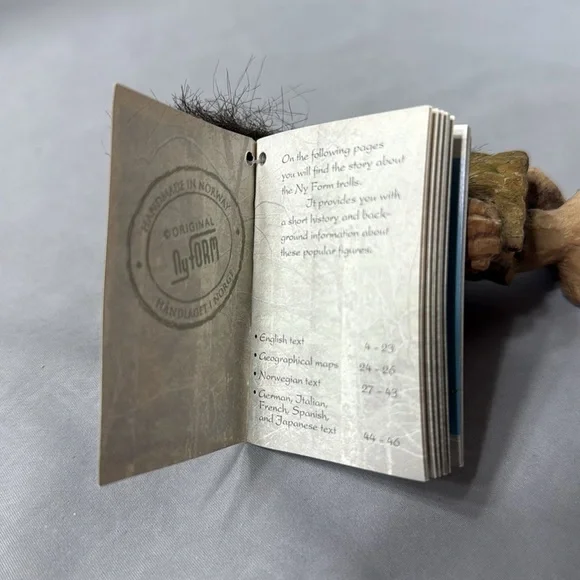 HANDMADE IN NORWAY
© ORIGINAL
NyFORM
HÅNDLAGET I NORGE
On the following pages
you will find the story about
the Ny Form trolls.
It provides you with
a short history and back-
ground information about
these popular figures.
• English text 4 - 23
• Geographical maps 24 - 26
• Norwegian text 27 - 43
• German, Italian,
French, Spanish,
and Japanese text 44 - 46